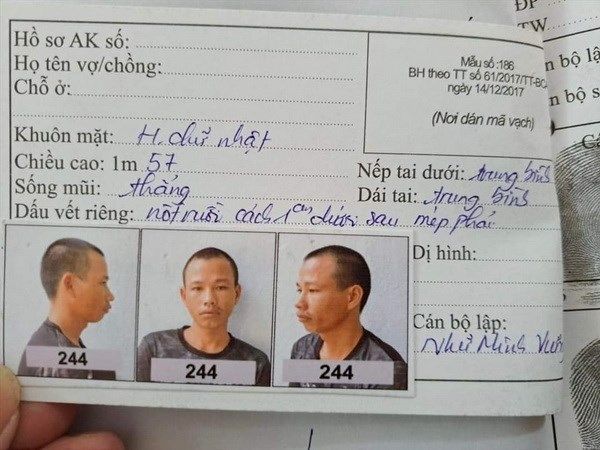 Hồ sơ AK số:
Họ tên vợ/chồng:
Chỗ ở:
Mẫu số :186
BH theo TT số 61/2017/TT-BC
ngày 14/12/2017
(Nơi dán mã vạch)
Khuôn mặt: H. chữ nhật
Chiều cao: 1m 57
Sống mũi: thẳng
Nếp tai dưới: trung bình
Dái tai: trung bình
Dấu vết riêng: nốt ruồi cách 1cm dưới sau mép phải
Dị hình:
Cán bộ lập:
Như Minh
244
244
244
ĐP
TW
n bộ
n bộ s